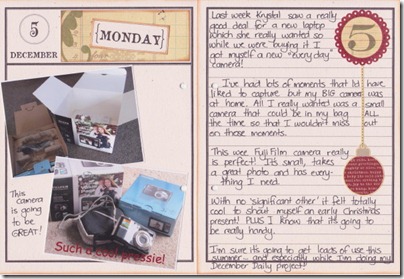 5
DECEMBER
{MONDAY}
This
camera
is going
to be
GREAT!
Such a cool pressie!
Last week Krystal saw a really
good deal for a new laptop
which she really wanted so
while we were buying it I
got myself a new "every day"
camera!
I've had lots of moments that I'd have
liked to capture but my BIG camera was
at home. All I really wanted was a small
camera that could be in my bag ALL
the time so that I wouldn't miss out
on those moments.
This wee Fuji Film camera really
is perfect! It's small, takes
a great photo and has every-
thing I need.
With no 'significant other' it felt totally
cool to shout myself an early Christmas
present! PLUS I know that it's going to
be really handy.
I'm sure it's going to get loads of use this
summer - and especially while I'm doing my
December Daily project!
5